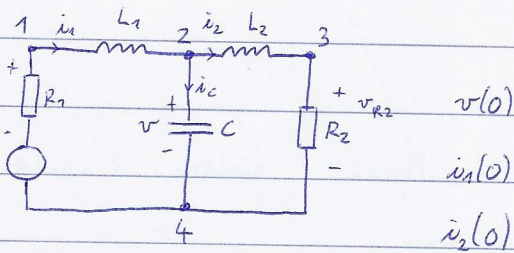 1 i₁ L₁ 2 i₂ L₂ 3
+ R₁ -
i_c
+ v - C
+ v_R2 - R₂
v(0)
i₁(0)
4
i₂(0)